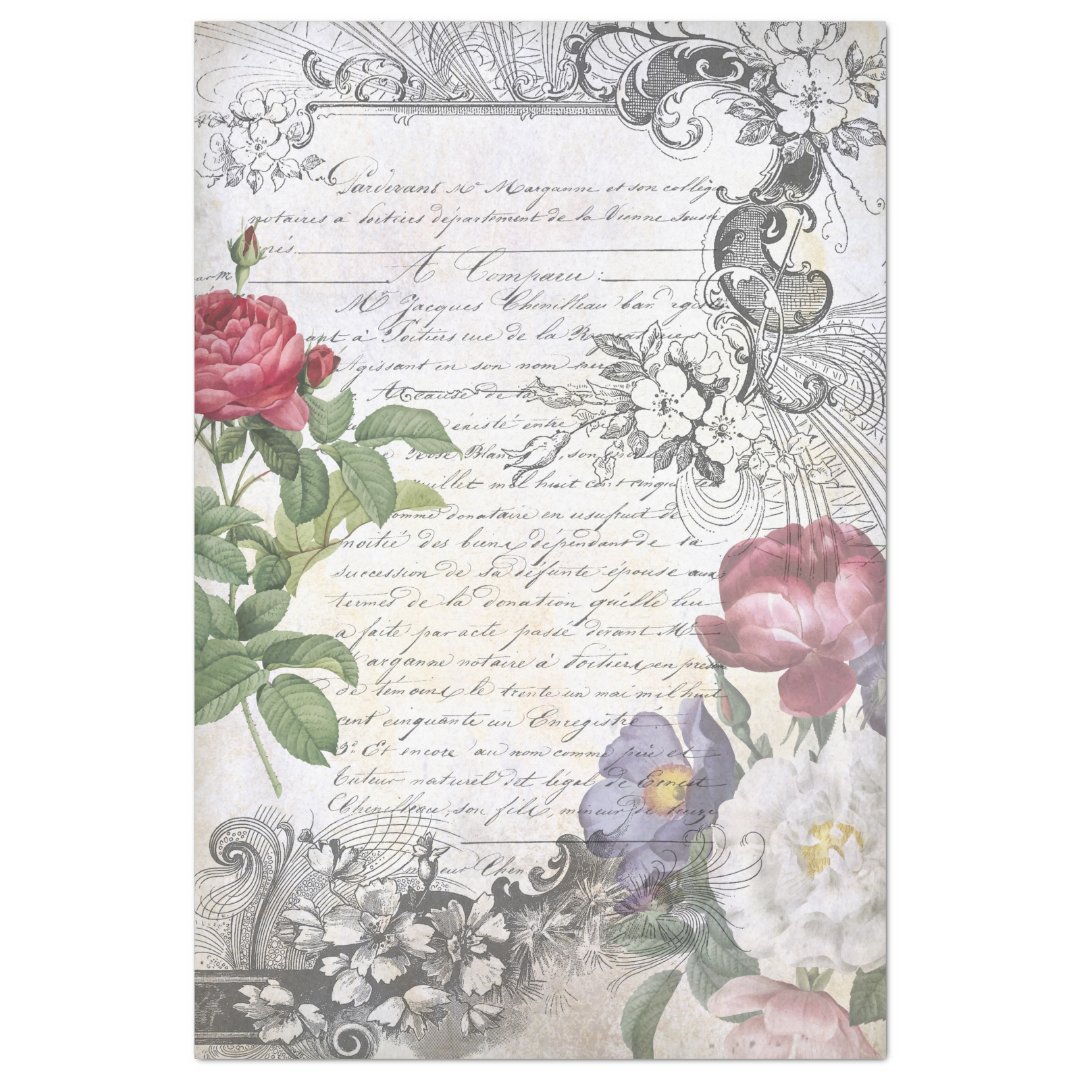 Pardevant Me Marganne et son collègue
notaires à Poitiers département de la Vienne Sous
nés
A Comparu:
Mr Jacques Chenilleau
à Poitiers rue de la
Agissant en son nom
A Cause de la
existé entre
Rose Blanc son
juillet mil huit cent cinquante
comme donataire en usufruit de
moitié des biens dépendant de la
succession de sa défunte épouse aux
termes de la donation qu'elle lui
a faite par acte passé devant Me
Marganne notaire à Poitiers en présen
de témoins le trente un mai mil huit
cent cinquante un Enregistré
2o. Et encore au nom comme père et
tuteur naturel et légal de Ernest
Chenilleau, son fils, mineur de
mineur Chen